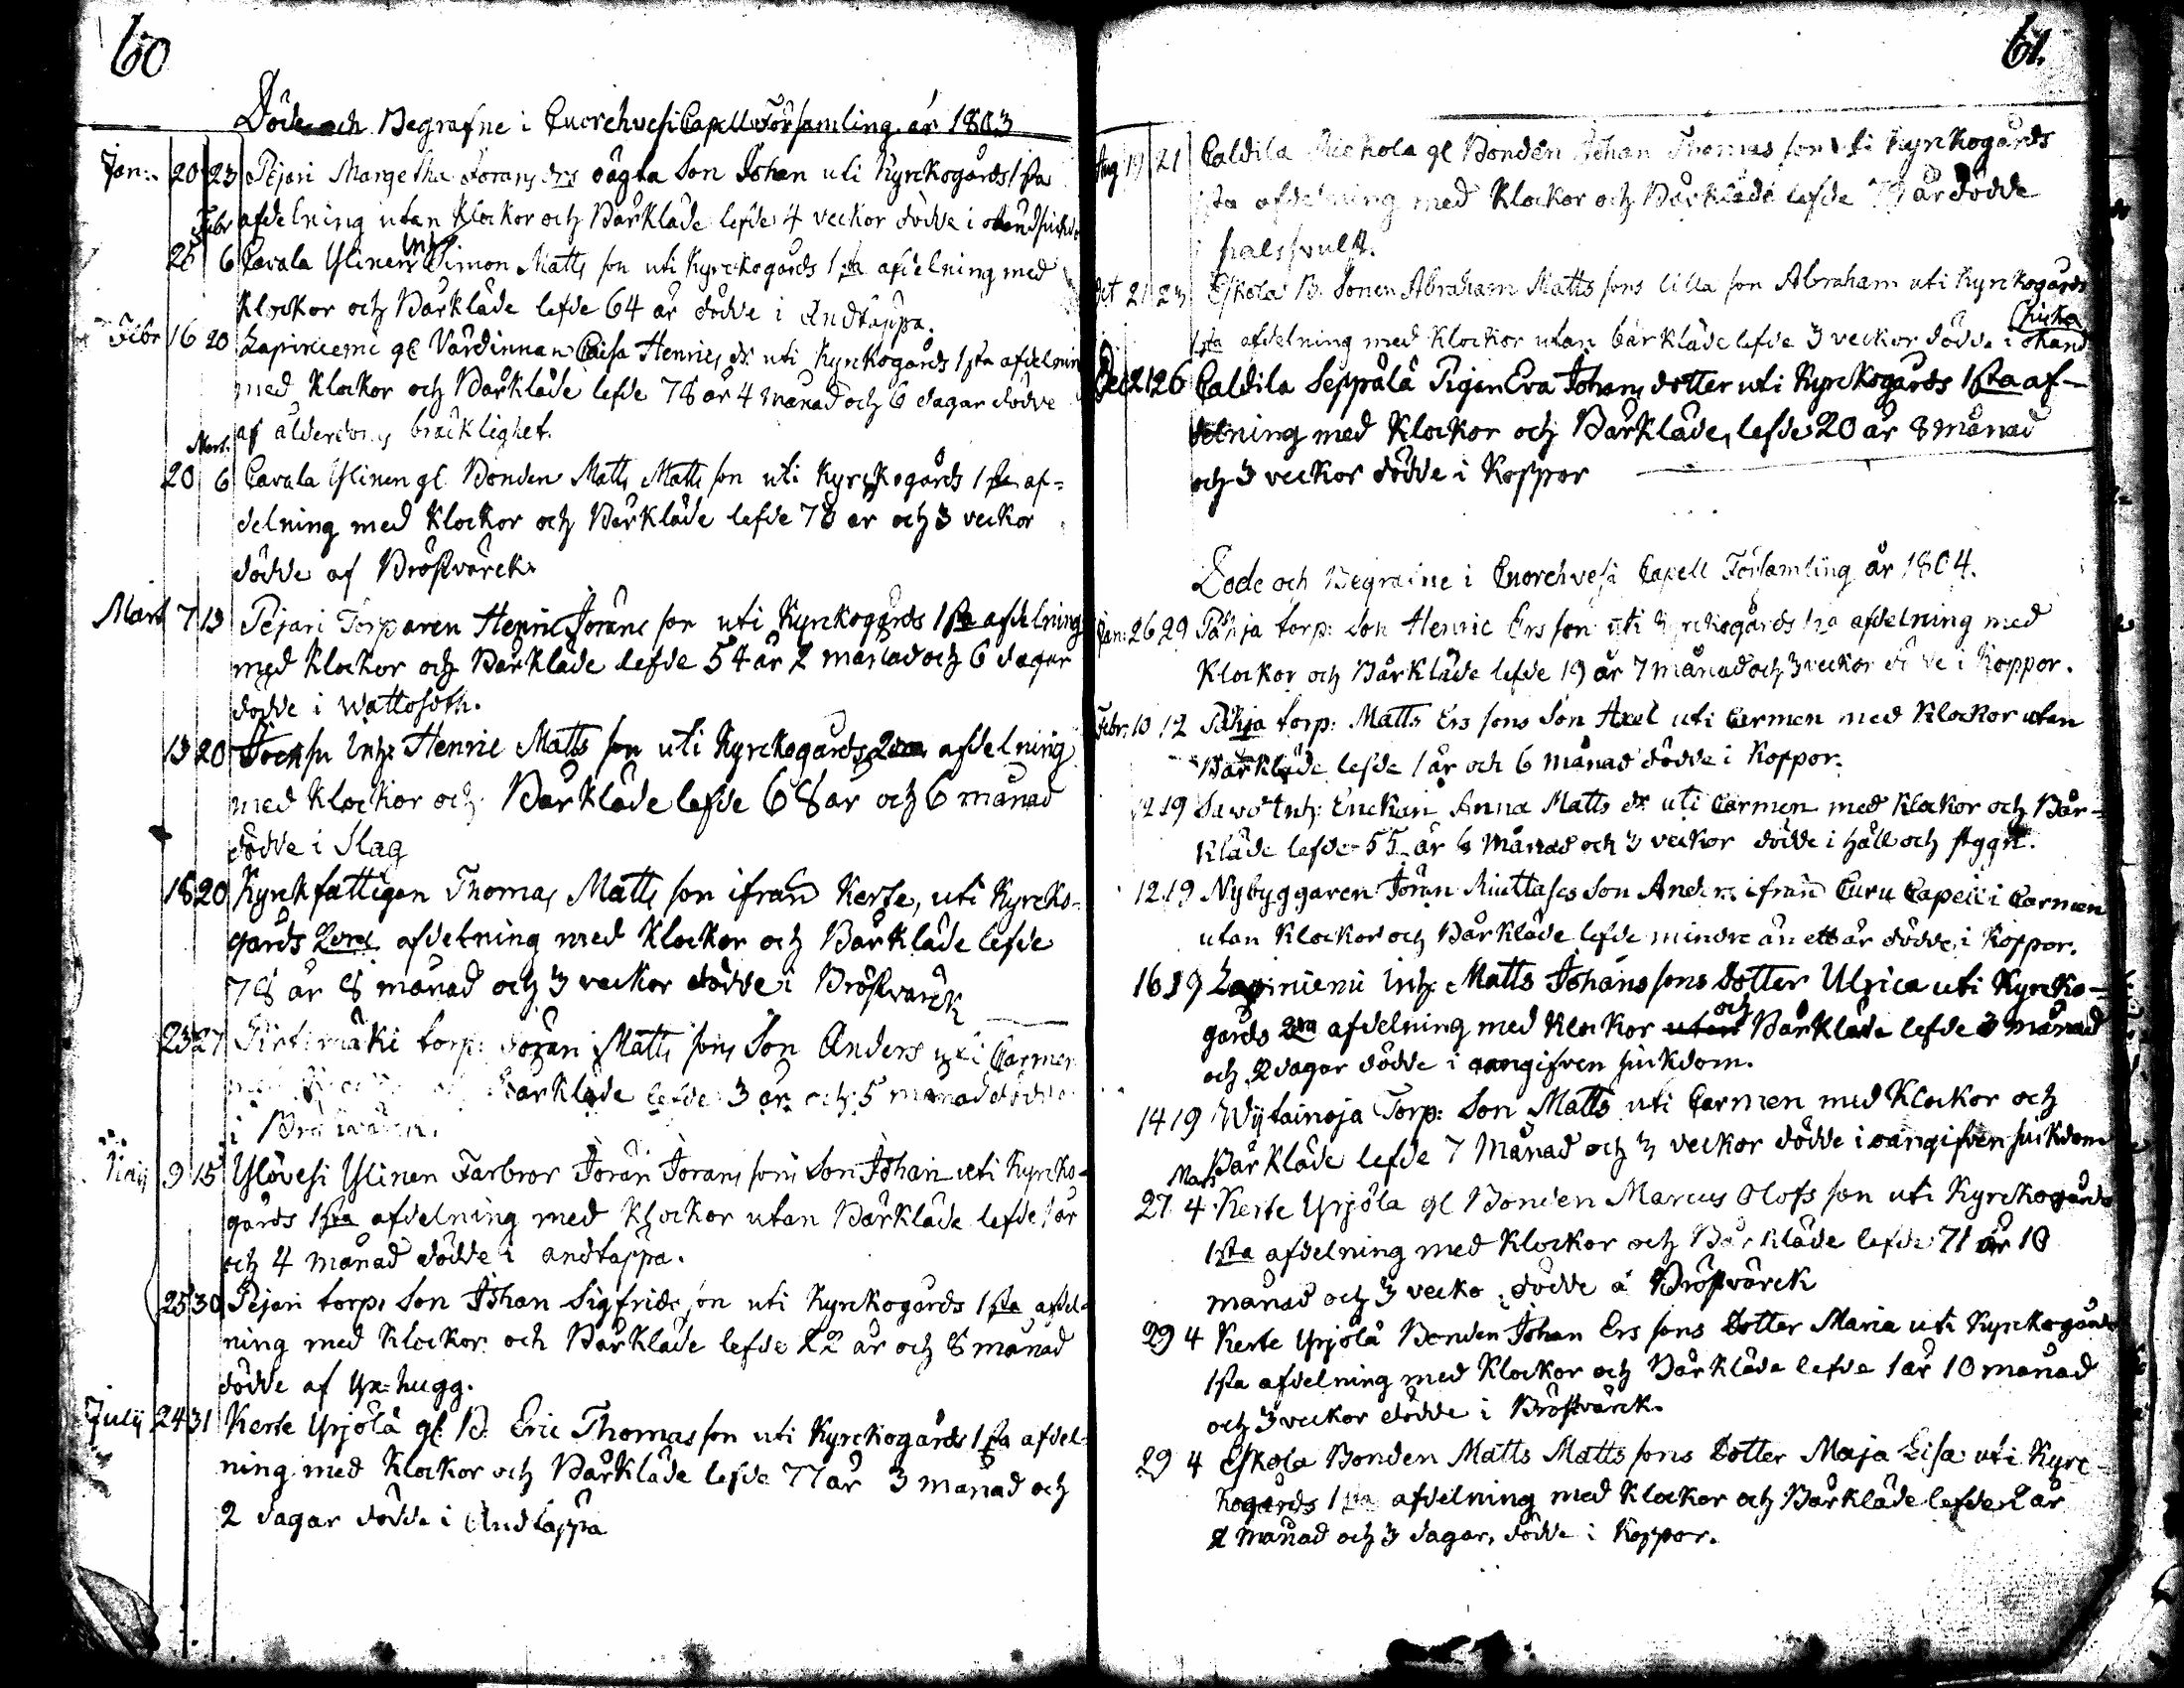 60
Döde och Begrafne i Cuorehvesi Capell Församling år 1803
Jan: 20 23 Pejari Margetha Jorans drs oägta Son Johan uti Kyrckogårds 1sta
afdelning utan Klockor och Bårkläde lefde 4 veckor dödde i
Febr
26 6 Cavala Ylinen Inh: Simon Matts son uti Kyrckogårds 1sta afdelning med
Klockor och Bårkläde lefde 64 år dödde i Andtäppa.
Febr 16 20 Lapiniemi gl Värdinnan Caisa Henrics dr uti Kyrckogårds 1sta afdelning
med Klockor och Bårkläde lefde 78 år 4 månad och 6 dagar dödde
af ålderdoms bräcklighet.
Mart.
20 6 Cavala Ylinen gl. Bonden Matts Matts son uti Kyrckogårds 1sta af=
delning med Klockor och Bårkläde lefde 78 år och 3 veckor
dödde af Bröstvärck
Mart 7 13 Pejari Torparen Henric Jörans son uti Kyrckogårds 1sta afdelning
med Klockor och Bårkläde lefde 54 år 2 månad och 6 dagar
dödde i Wattosoth.
13 20 Inh: Henric Matts son uti Kyrckogårds 2dra afdelning
med Klockor och Bårkläde lefde 68 år och 6 månad
dödde i Slag
18 20 Kyrckfattigen Thomas Matts son ifrån Kerte, uti Kyrcko=
gårds 2dra afdelning med Klockor och Bårkläde lefde
78 år 8 månad och 3 veckor dödde i Bröstvärck
23 27 Pirtimäki torp: Jöran Matts sons Son Anders uti Carmen
Bårkläde lefde 3 år och 5 månad dödde
i
9 15 Ylövesi Ylinen Farbror Jöran Jorans sons Son Johan uti Kyrcko-
gårds 1sta afdelning med Klockor utan Bårkläde lefde 1 år
och 4 månad dödde i andtäppa.
25 30 Pejari torp: Son Johan Sigfrids son uti Kyrckogårds 1sta afdel=
ning med Klockor och Bårkläde lefde 22 år och 8 månad
dödde af Yx=hugg.
July 24 31 Kerte Yrjölä gl: B. Eric Thomas son uti Kyrckogårds 1sta afdel=
ning med Klockor och Bårkläde lefde 77 år 3 månad och
2 dagar dödde i Andtäppa
61.
Aug 19 21 Caldila gl Bonden Johan Thomas son uti Kyrckogårds
1sta afdelning med Klockor och Bårkläde lefde 79 år dödde
i halssvulst.
21 23 Eskola B. Sonen Abraham Matts sons lilla son Abraham uti Kyrckogårds
1sta afdelning med Klockor utan bårkläde lefde 3 veckor dödde i okänd
siuka
Dec 21 26 Caldila Seppälä Pigan Eva Johans dotter uti Kyrckogårds 1sta af-
delning med Klockor och Bårkläde, lefde 20 år 8 månad
och 3 veckor dödde i Koppor
Döde och Begrafne i Cuorehvesi Capell Församling år 1804.
Jan: 26 29 torp: Son Henric Ers son uti Kyrckogårds 1sta afdelning med
Klockor och Bårkläde lefde 19 år 7 månad och 3 veckor dödde i Koppor.
Febr: 10 12 torp: Matts Ers sons Son Axel uti Carmen med Klockor utan
Bårkläde lefde 1 år och 6 månad dödde i Koppor.
12 19 Inh: Enckan Anna Matts dr uti Carmen med Klockor och Bår-
kläde lefde 55 år 6 Månad och 3 veckor dödde i håll och stygn.
12 19 Nybyggaren Jöran Son Anders ifrån Curu Capell i Carmen
utan Klockor och Bårkläde lefde mindre än ett år dödde i Koppor.
16 19 Lapiniemi Inh: Matts Johans sons dotter Ulrica uti Kyrcko-
gårds 2dra afdelning med Klockor utan och Bårkläde lefde 3 månad
och 2 dagar dödde i oangifven siukdom.
14 19 Wytainoja Torp: Son Matts uti Carmen med Klockor och
Bårkläde lefde 7 Månad och 3 veckor dödde i oangifven siukdom
Mars
27 4 Kerte Yrjölä gl Bonden Marcus Olofs son uti Kyrckogårds
1sta afdelning med Klockor och Bårkläde lefde 71 år 10
månad och 3 vecko dödde a Bröstvärck
29 4 Kerte Yrjölä Bonden Johan Ers sons Dotter Maria uti Kyrckogårds
1sta afdelning med Klockor och Bårkläde lefde 1 år 10 månad
och 3 veckor dödde i Bröstvärck.
29 4 Eskola Bonden Matts Matts sons Dotter Maja Lisa uti Kyrc-
kogårds 1sta afdelning med Klockor och Bårkläde lefde 2 år
2 månad och 3 dagar, dödde i Koppor.